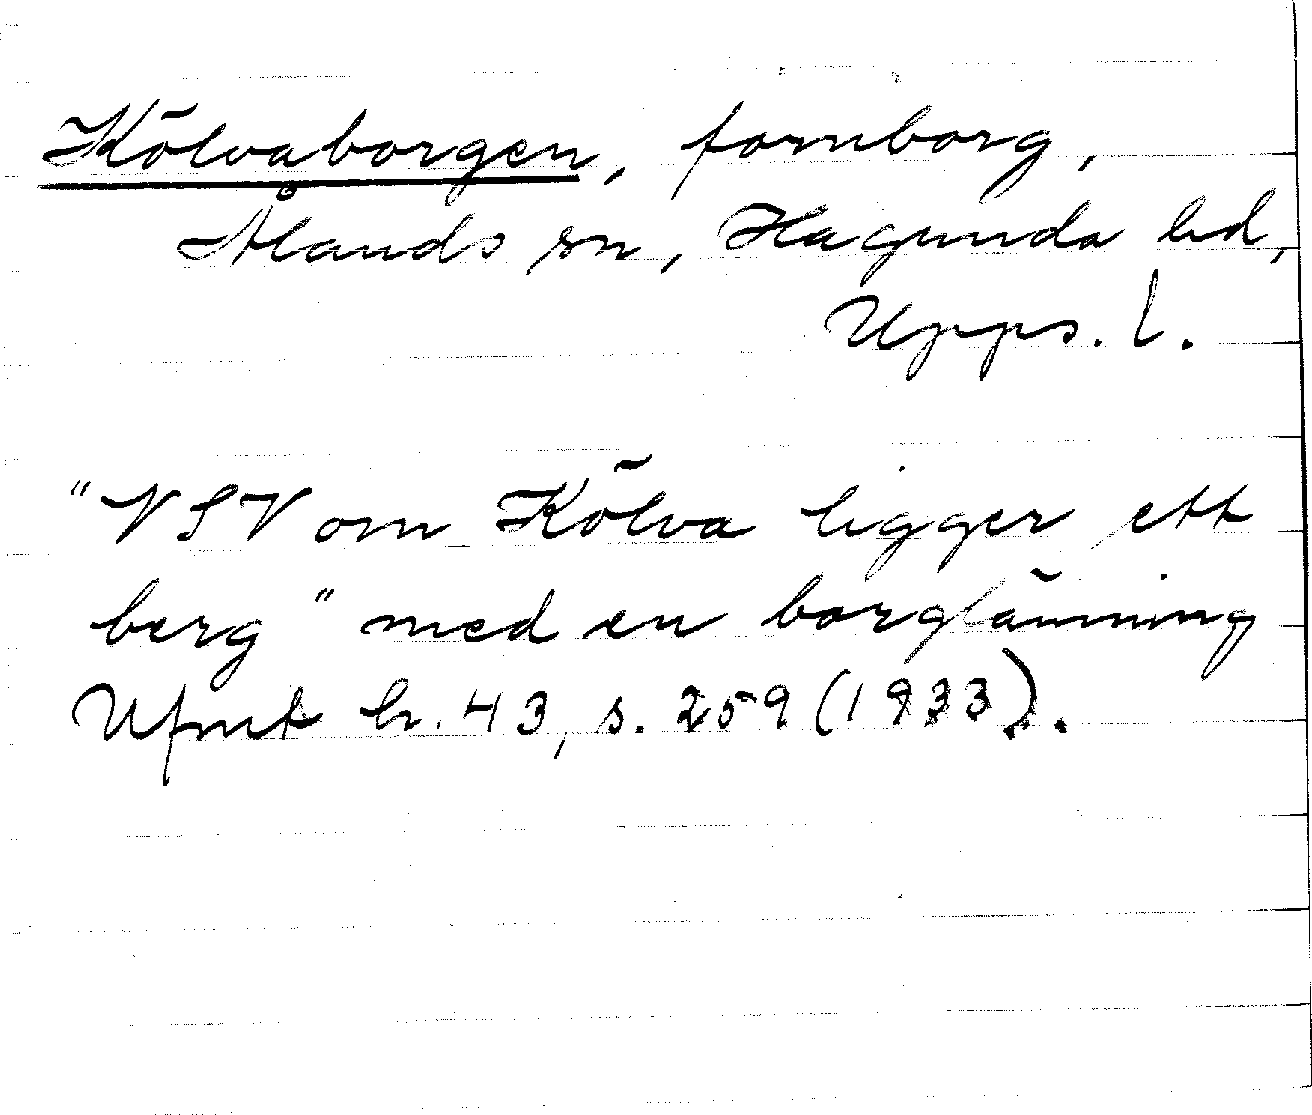 Kölvaborgen, fornborg,
Ålands sn, Hagunda hd,
Upps. l.
"VSV om Kölva ligger ett
berg" med en borglämning
Ufmt h. 43, s. 259 (1933).